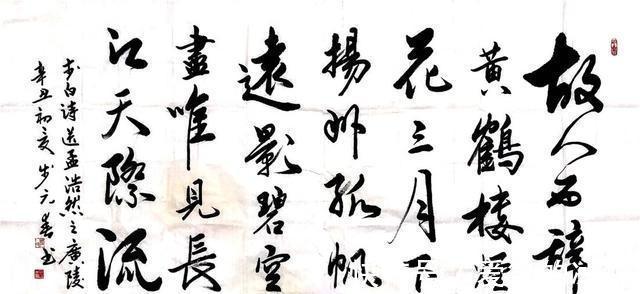 故人西辞
黄鶴樓煙
花三月下
揚州孤帆
遠影碧空
盡唯見長
江天際流
李白诗送孟浩然之廣陵
辛丑初夏步元春书